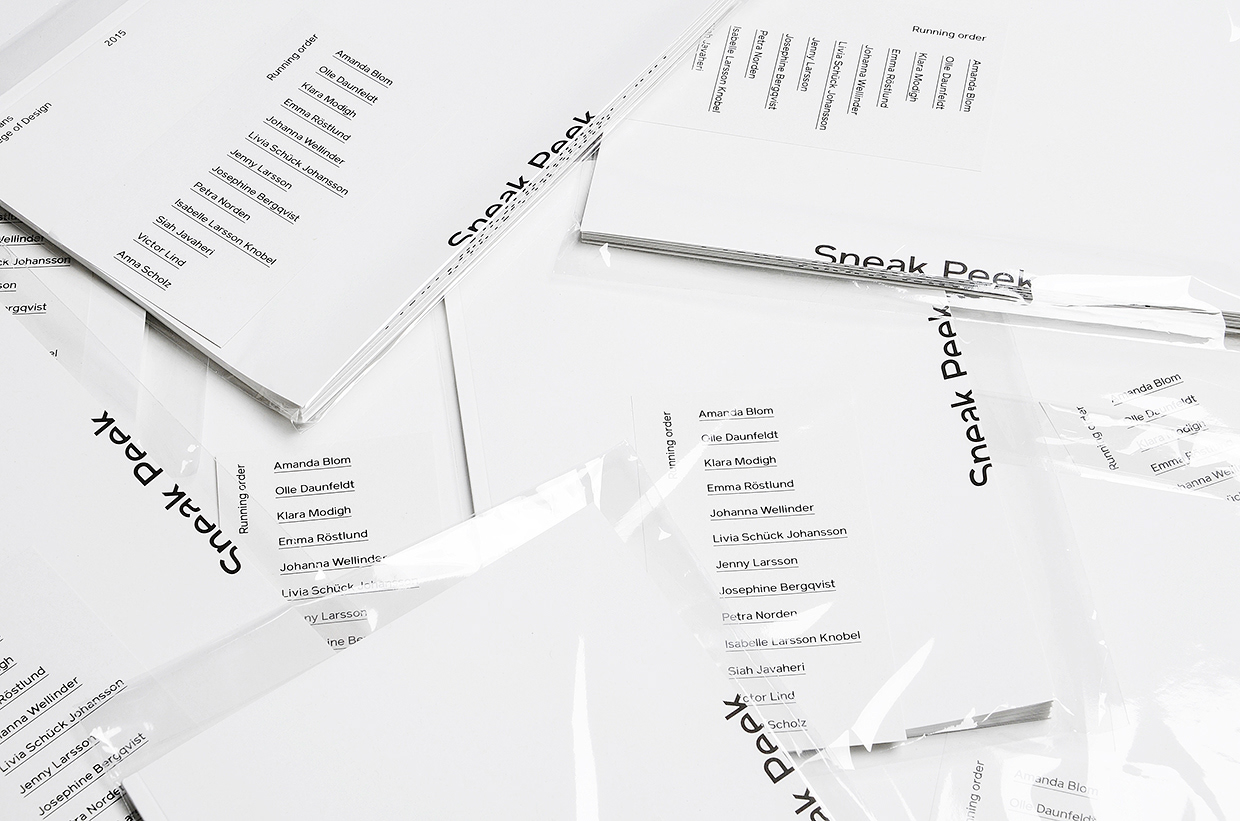 2015
ge of Design
Running order
Amanda Blom
Olle Daunfeldt
Klara Modigh
Emma Röstlund
Johanna Wellinder
Livia Schück Johansson
Jenny Larsson
Josephine Bergqvist
Petra Norden
Isabelle Larsson Knobel
Siah Javaheri
Victor Lind
Anna Scholz
Sneak Peek
Running order
Amanda Blom
Olle Daunfeldt
Klara Modigh
Emma Röstlund
Johanna Wellinder
Livia Schück Johansson
Jenny Larsson
Josephine Bergqvist
Petra Norden
Isabelle Larsson Knobel
Javaheri
Sneak Peek
Wellinder
ck Johansson
son
ergqvist
Sneak Peek
Running order
Amanda Blom
Olle Daunfeldt
Klara Modigh
Emma Röstlund
Johanna Wellinder
Livia Schück Johansson
ny Larsson
ine Be
Running order
Amanda Blom
Olle Daunfeldt
Klara Modigh
Emma Röstlund
Johanna Wellinder
Livia Schück Johansson
Jenny Larsson
Josephine Bergqvist
Petra Norden
Isabelle Larsson Knobel
Siah Javaheri
Victor Lind
Scholz
Sneak Peek
Running order
Amanda Blom
Olle Daunfeldt
Klara Modigh
Emma Rö
hanna We
gh
Röstlund
anna Wellinder
Livia Schück Johansson
Jenny Larsson
Josephine Bergqvist
Petra Norde
ak Peek
Running order
Amanda Blom
Olle Daunfeldt